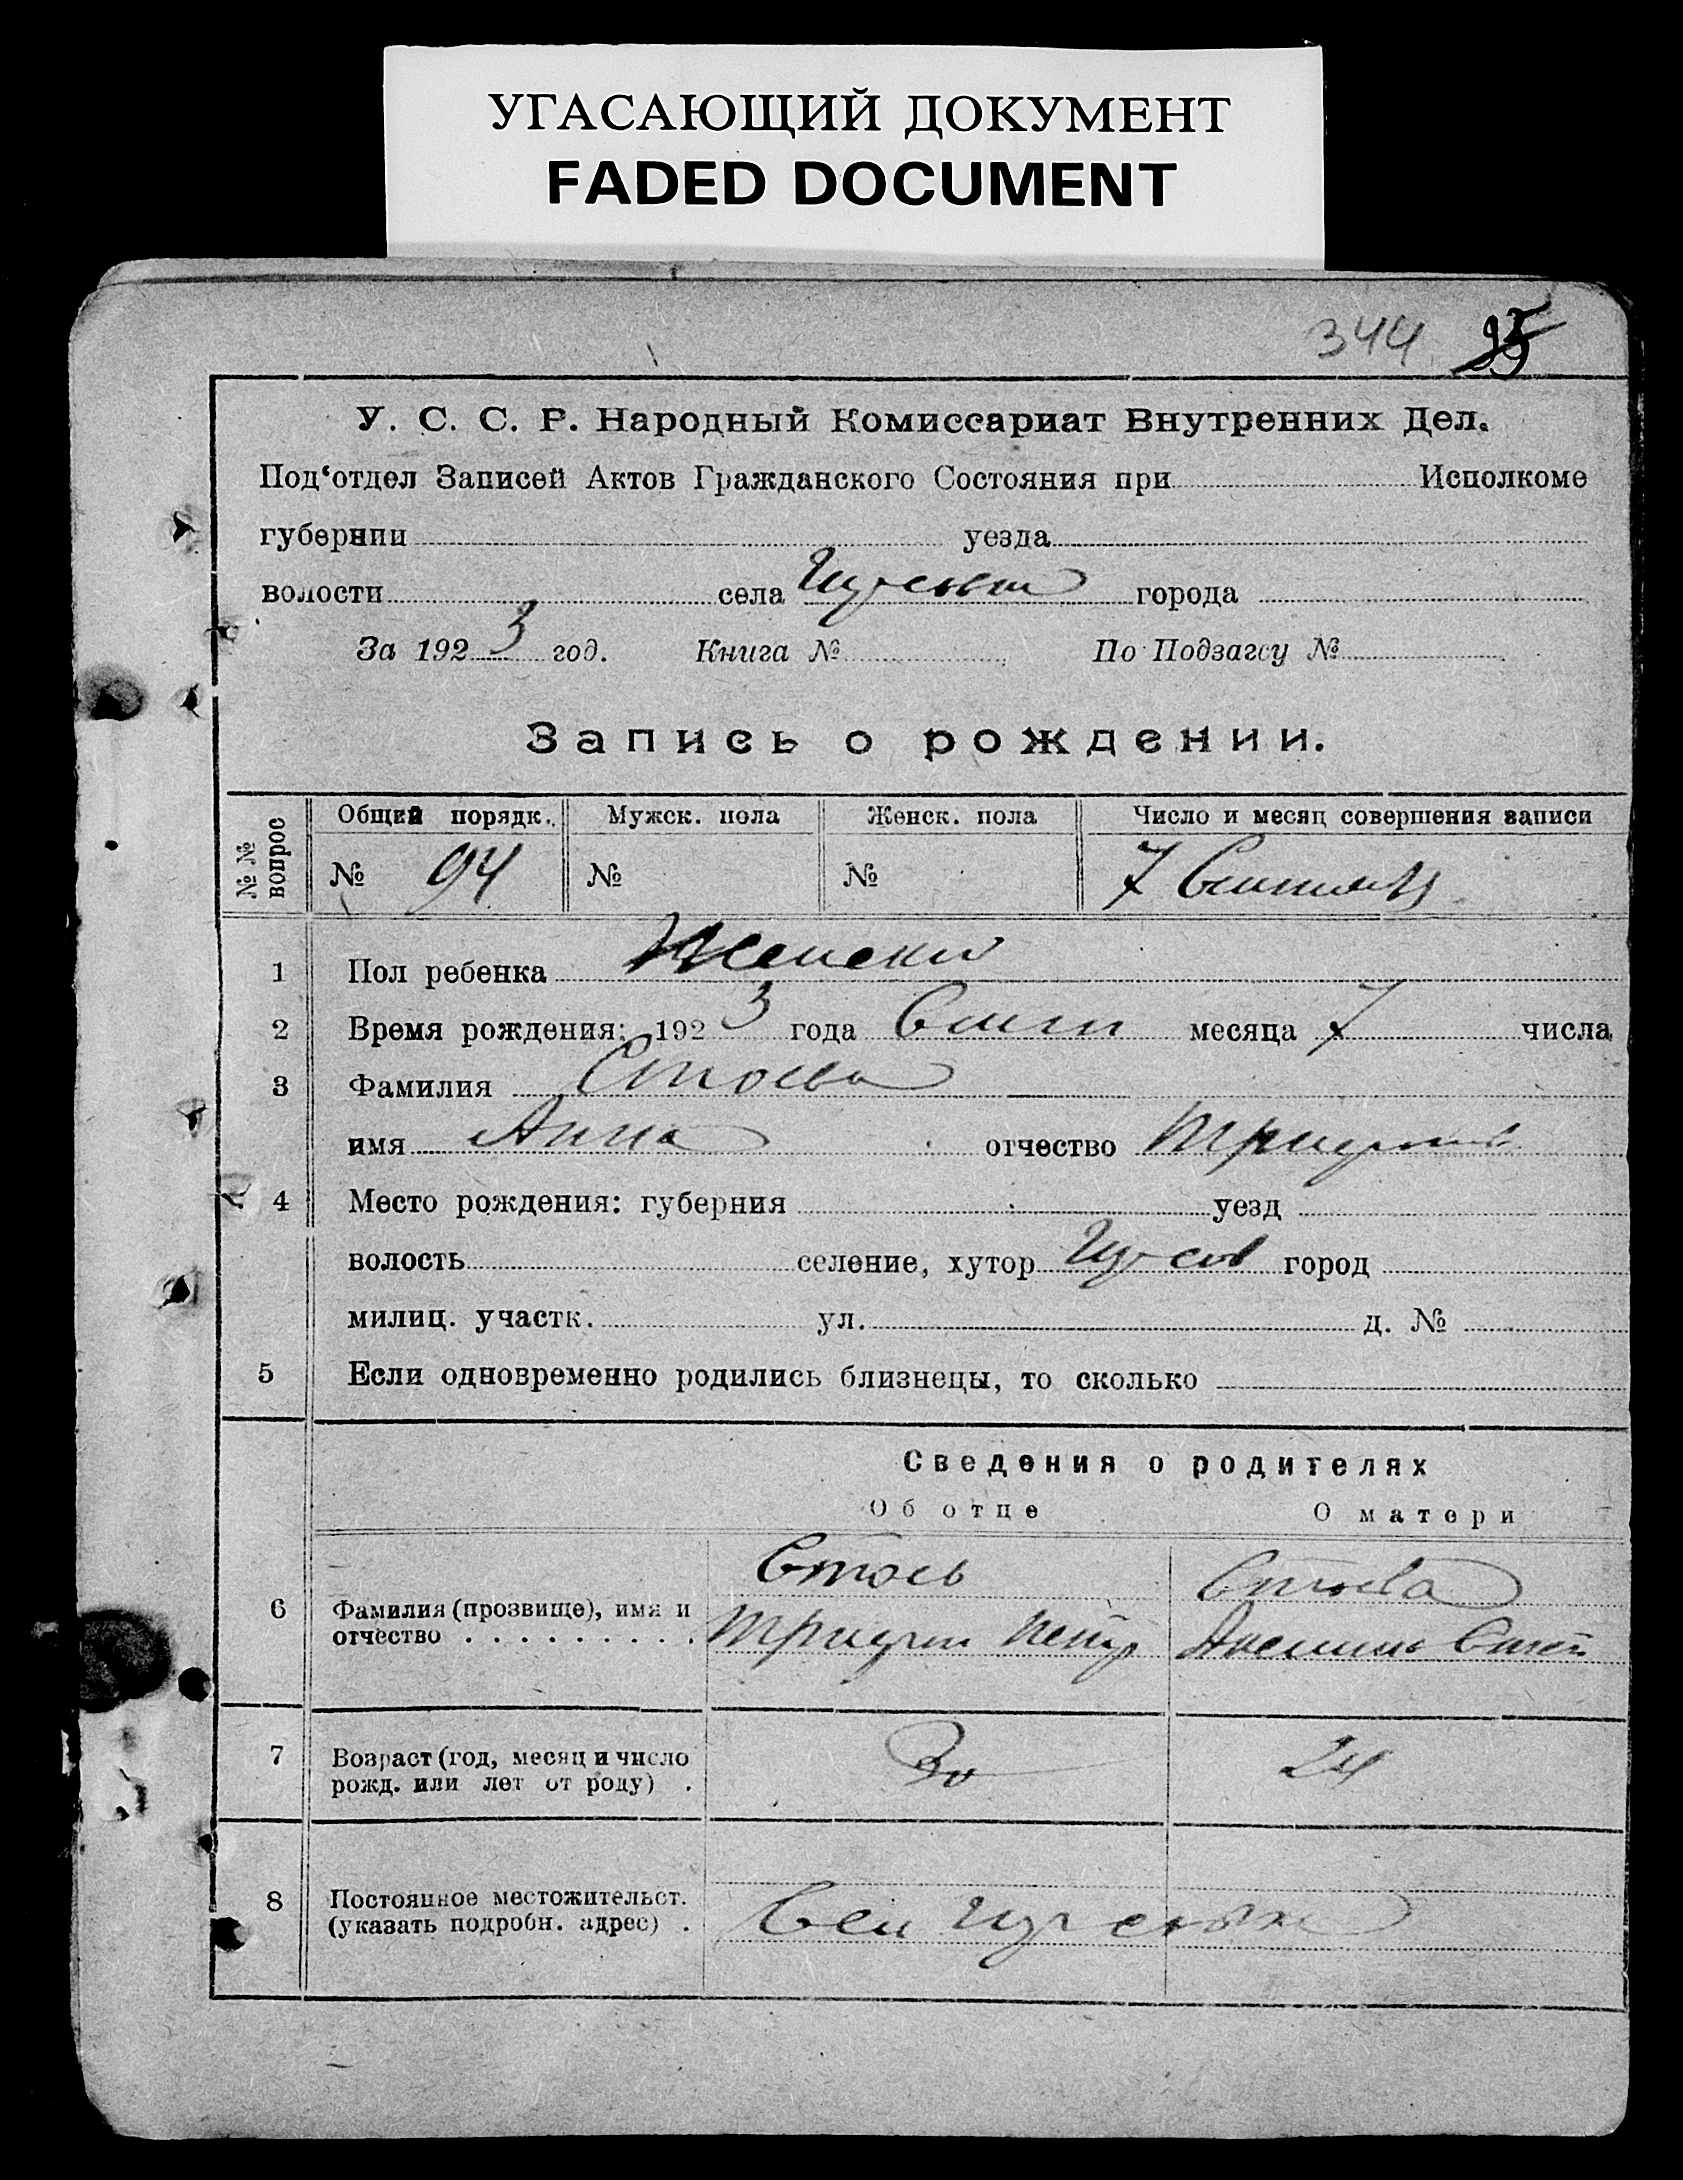 УГАСАЮЩИЙ ДОКУМЕНТ
FADED DOCUMENT
344 25
У. С. С. Р. Народный Комиссариат Внутренних Дел.
Под‘отдел Записей Актов Гражданского Состояния при Исполкоме
губернии уезда
волости села города
За 1923 год. Книга № По Подзагсу №
Запись о рождении.
№№ вопрос Общий порядк. Мужск. пола Женск. пола Число и месяц совершения записи
№ 94 № № 7
1 Пол ребенка Женский
2 Время рождения: 1923 года месяца 7 числа
3 Фамилия Стоева
имя Анна отчество
4 Место рождения: губерния уезд
волость селение, хутор город
милиц. участк. ул. д. №
5 Если одновременно родились близнецы, то сколько
Сведения о родителях
Об отце О матери
Стоев Стоева
6 Фамилия (прозвище), имя и
отчество
7 Возраст (год, месяц и число 30 24
рожд. или лет от роду)
8 Постоянное местожительст.
(указать подробн. адрес)